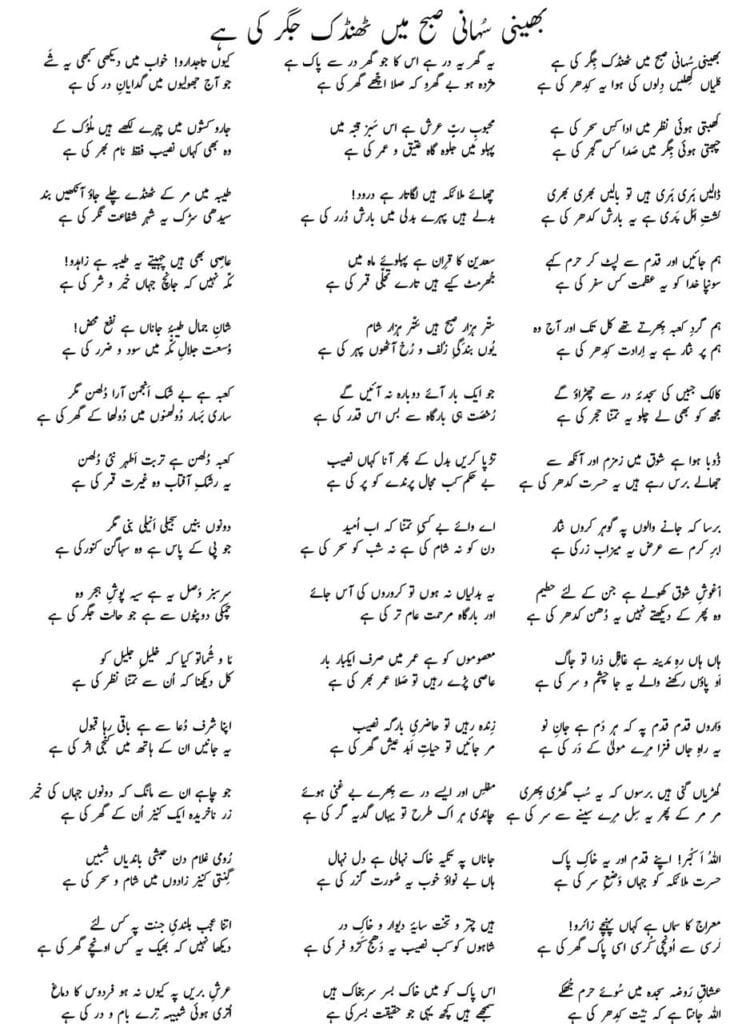 بھینی سُہانی صبح میں ٹھنڈک جگر کی ہے
بھینی سُہانی صبح میں ٹھنڈک جِگر کی ہے
کلیاں کِھلیں دِلوں کی ہوا یہ کِدھر کی ہے
کھبتی ہوئی نظر میں ادا کِس سحر کی ہے
چھبتی ہوئی جِگر میں صَدا کس گجر کی ہے
ڈالیں ہَری ہَری ہیں تو بالیں بھری بھری
کِشتِ اَمل پَری ہے یہ بارِش کدھر کی ہے
ہم جائیں اور قدم سے لپٹ کر حرم کہے
سونپا خدا کو یہ عظمت کس سفر کی ہے
ہم گِردِ کعبہ پھرتے تھے کل تک اور آج وہ
ہم پر نثار ہے یہ اِرادت کِدھر کی ہے
کالک جبیں کی سجدۂ در سے چھڑاؤ گے
مجھ کو بھی لے چلو یہ تمنّا حجر کی ہے
ڈُوبا ہوا ہے شوق میں زمزم اور آنکھ سے
جھالے برس رہے ہیں یہ حسرت کدھر کی ہے
برسا کہ جانے والوں پہ گوہر کروں نثار
ابرِ کرم سے عرض یہ میزابِ زر کی ہے
آغوشِ شوق کھولے ہے جن کے لئے حطیم
وہ پھر کے دیکھتے نہیں یہ دُھن کدھر کی ہے
ہاں ہاں رہِ مدینہ ہے غافل ذرا تو جاگ
او پاؤں رکھنے والے یہ جا چشم و سر کی ہے
وَاروں قدم قدم پہ کہ ہر دَم ہے جانِ نو
یہ راہِ جاں فزا مِرے مولیٰ کے دَر کی ہے
گھڑیاں گنی ہیں برسوں کہ یہ سُب گھڑی پِھری
مر مر کے پھر یہ سِل مِرے سینے سے سر کی ہے
اللهُ اَکْبَر! اپنے قدم اور یہ خاکِ پاک
حسرت ملائکہ کو جہاں وَضعِ سر کی ہے
معراج کا سماں ہے کہاں پہنچے زائرو!
کُرسی سے اُونچی کُرسی اسی پاک گھر کی ہے
عشاقِ رَوضہ سجدہ میں سُوئے حرم جُھکے
اللہ جانتا ہے کہ نِیّت کِدھر کی ہے
یہ گھر یہ در ہے اس کا جو گھر در سے پاک ہے
مژدہ ہو بے گھرو کہ صلا اچھے گھر کی ہے
محبوبِ ربِّ عرش ہے اس سَبز قُبّہ میں
پہلو میں جلوہ گاہ عتیق و عمر کی ہے
چھائے ملائکہ ہیں لگاتار ہے درود!
بدلے ہیں پہرے بدلی میں بارش دُرر کی ہے
سعدین کا قِران ہے پہلوئے ماہ میں
جُھرمٹ کیے ہیں تارے تجلّی قمر کی ہے
ستّر ہزار صبح ہیں ستّر ہزار شام
یُوں بندگیِ زُلف و رُخ آٹھوں پہر کی ہے
جو ایک بار آئے دوبارہ نہ آئیں گے
رُخصَت ہی بارگاہ سے بس اس قدر کی ہے
تڑپا کریں بدل کے پھر آنا کہاں نصیب
بے حکم کب مجال پرندے کو پر کی ہے
اے وائے بے کسیِ تمنّا کہ اب اُمید
دن کو نہ شام کی ہے نہ شب کو سحر کی ہے
یہ بدلیاں نہ ہوں تو کروروں کی آس جائے
اور بارگاہ مرحمتِ عام تر کی ہے
معصوموں کو ہے عمر میں صرف ایکبار بار
عاصی پڑے رہیں تو صَلا عمر بھر کی ہے
زِندہ رہیں تو حاضریِ بارگہ نصیب
مر جائیں تو حیاتِ اَبد عیش گھر کی ہے
مفلس اور ایسے در سے پِھرے بے غنی ہوئے
چاندی ہر اک طرح تو یہاں گدیہ گر کی ہے
جاناں پہ تکیہ خاک نہالی ہے دل نہال
ہاں بے نواؤ خوب یہ صُورت گزر کی ہے
ہیں چتر و تخت سایۂ دیوار و خاکِ در
شاہوں کو کب نصیب یہ دَھج کَرّو فر کی ہے
اس پاک کُو میں خاک بسر سربخاک ہیں
سمجھے ہیں کچھ یہی جو حقیقت بسر کی ہے
کیوں تاجدارو! خواب میں دیکھی کبھی یہ شَے
جو آج جھولیوں میں گدایانِ در کی ہے
جارو کشوں میں چہرے لکھے ہیں مُلوک کے
وہ بھی کہاں نصیب فقط نام بھر کی ہے
طیبہ میں مر کے ٹھنڈے چلے جاؤ آنکھیں بند
سیدھی سڑک یہ شہرِ شفاعت نگر کی ہے
عاصی بھی ہیں چہیتے یہ طیبہ ہے زاہدو!
مکّہ نہیں کہ جانچ جہاں خیر و شر کی ہے
شانِ جمالِ طیبۂ جاناں ہے نفعِ محض!
وُسعت جلالِ مکّہ میں سود و ضرر کی ہے
کعبہ ہے بے شک انجمن آرا دُلھن مگر
ساری بَہار دُولہنوں میں دُولھا کے گھر کی ہے
کعبہ دُلھن ہے تربتِ اَطہر نئی دُلھن
یہ رشکِ آفتاب وہ غیرت قمر کی ہے
دونوں بنیں سجیلی اَنیلی بنی مگر
جو پی کے پاس ہے وہ سہاگن کنور کی ہے
سر سبزِ وَصل یہ ہے سیہ پوشِ ہجر وہ
چمکی دوپٹوں سے ہے جو حالت جگر کی ہے
مَا و شُما تو کیا کہ خلیلِ جلیل کو
کل دیکھنا کہ اُن سے تمنّا نظر کی ہے
اپنا شرف دُعا سے ہے باقی رہا قبول
یہ جانیں ان کے ہاتھ میں کنجی اثر کی ہے
جو چاہے ان سے مانگ کہ دونوں جہاں کی خیر
زر ناخریدہ ایک کنیز اُن کے گھر کی ہے
رُومی غلام دن حبشی باندیاں شبیں
گِنتی کنیز زادوں میں شام و سحر کی ہے
اتنا عجب بلندیِ جنت پہ کس لئے
دیکھا نہیں کہ بھیک یہ کس اونچے گھر کی ہے
عرشِ بریں پہ کیوں نہ ہو فردوس کا دماغ
اُتری ہوئی شبیہہ تِرے بام و در کی ہے